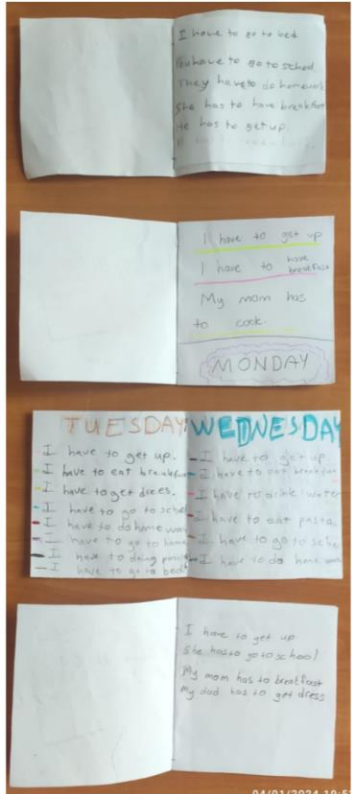 I have to go to bed
You have to go to school.
They have to do homework
She has to have breakfast
He has to get up.
I have to get up
I have to have breakfast
My mom has
to cook.
MONDAY
TUESDAY
I have to get up.
I have to eat breakfast
I have to get drees.
I have to go to school
I have to do home work
I have to go to home
I have to doing
I have to go to bed
WEDNESDAY
I have to get up
I have to eat breakfast
I have to drink water
I have to eat pasta.
I have to go to school
I have to do home work
I have to get up
She has to go to school
My mom has to breakfast
My dad has to get dress
04/01/2024